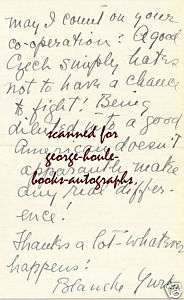 may I count on your
co-operation? A good
Czech simply hates
not to have a chance
to fight! Being
diluted into a good
American doesn't
apparently make
any real differ-
ence!
Thanks a lot - whatever
happens!
Blanche Yurka
scanned for
george-houle-
books-autographs.